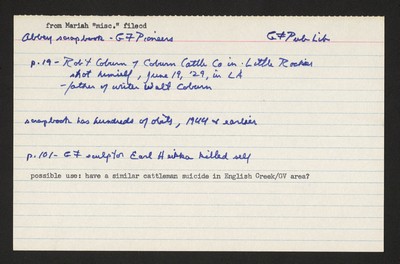 from Mariah "misc." filecd
Abbey scrapbook - GF Pioneers GF Pub Lib
p. 19 - Rob't Coburn of Coburn Cattle Co in Little Rockies
shot himself, June 19, '29, in LA
- father of writer Walt Coburn
scrapbook has hundreds of obits, 1944 & earlier
p. 101 - GF sculptor Earl Heikka killed self
possible use: have a similar cattleman suicide in English Creek/GV area?